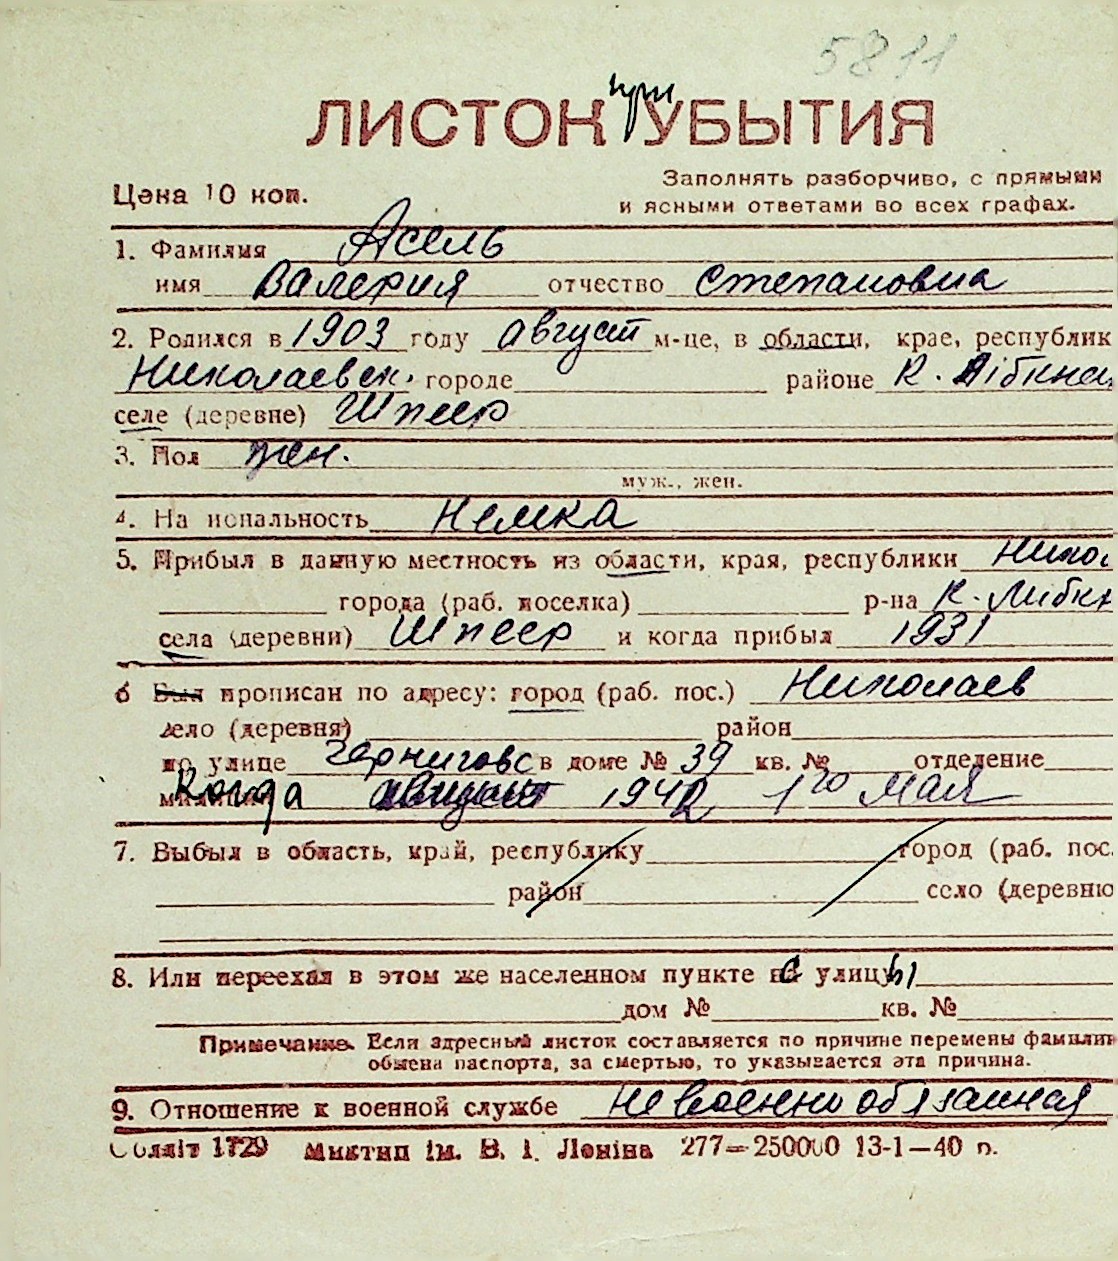 5811
ЛИСТОК при УБЫТИЯ
Цена 10 коп.
Заполнять разборчиво, с прямыми
и ясными ответами во всех графах.
1. Фамилия Асель
имя Валерия отчество Степановна
2. Родился в 1903 году август м-це, в области, крае, республик
Николаевск. городе районе К. Лібкне
селе (деревне) Шпеер
3. Пол жен.
муж., жен.
4. На иональность Немка
5. Прибыл в данную местность из области, края, республики Никол
города (раб. поселка) р-на К. Либкн
села (деревни) Шпеер и когда прибыл 1931
6 Был прописан по адресу: город (раб. пос.) Николаев
село (деревня) район
по улице Черниговс в доме № 39 кв. № отделение
милиции Когда август 1942 1го мая
7. Выбыл в область, край, республику город (раб. пос.
район село (деревню
8. Или переехал в этом же населенном пункте с улицы
дом № кв. №
Примечание. Если адресный листок составляется по причине перемены фамилии
обмена паспорта, за смертью, то указывается эта причина.
9. Отношение к военной службе Невоеннообязанная
Обліт 1729 Миктип ім. В. І. Леніна 277—250000 13-1—40 р.